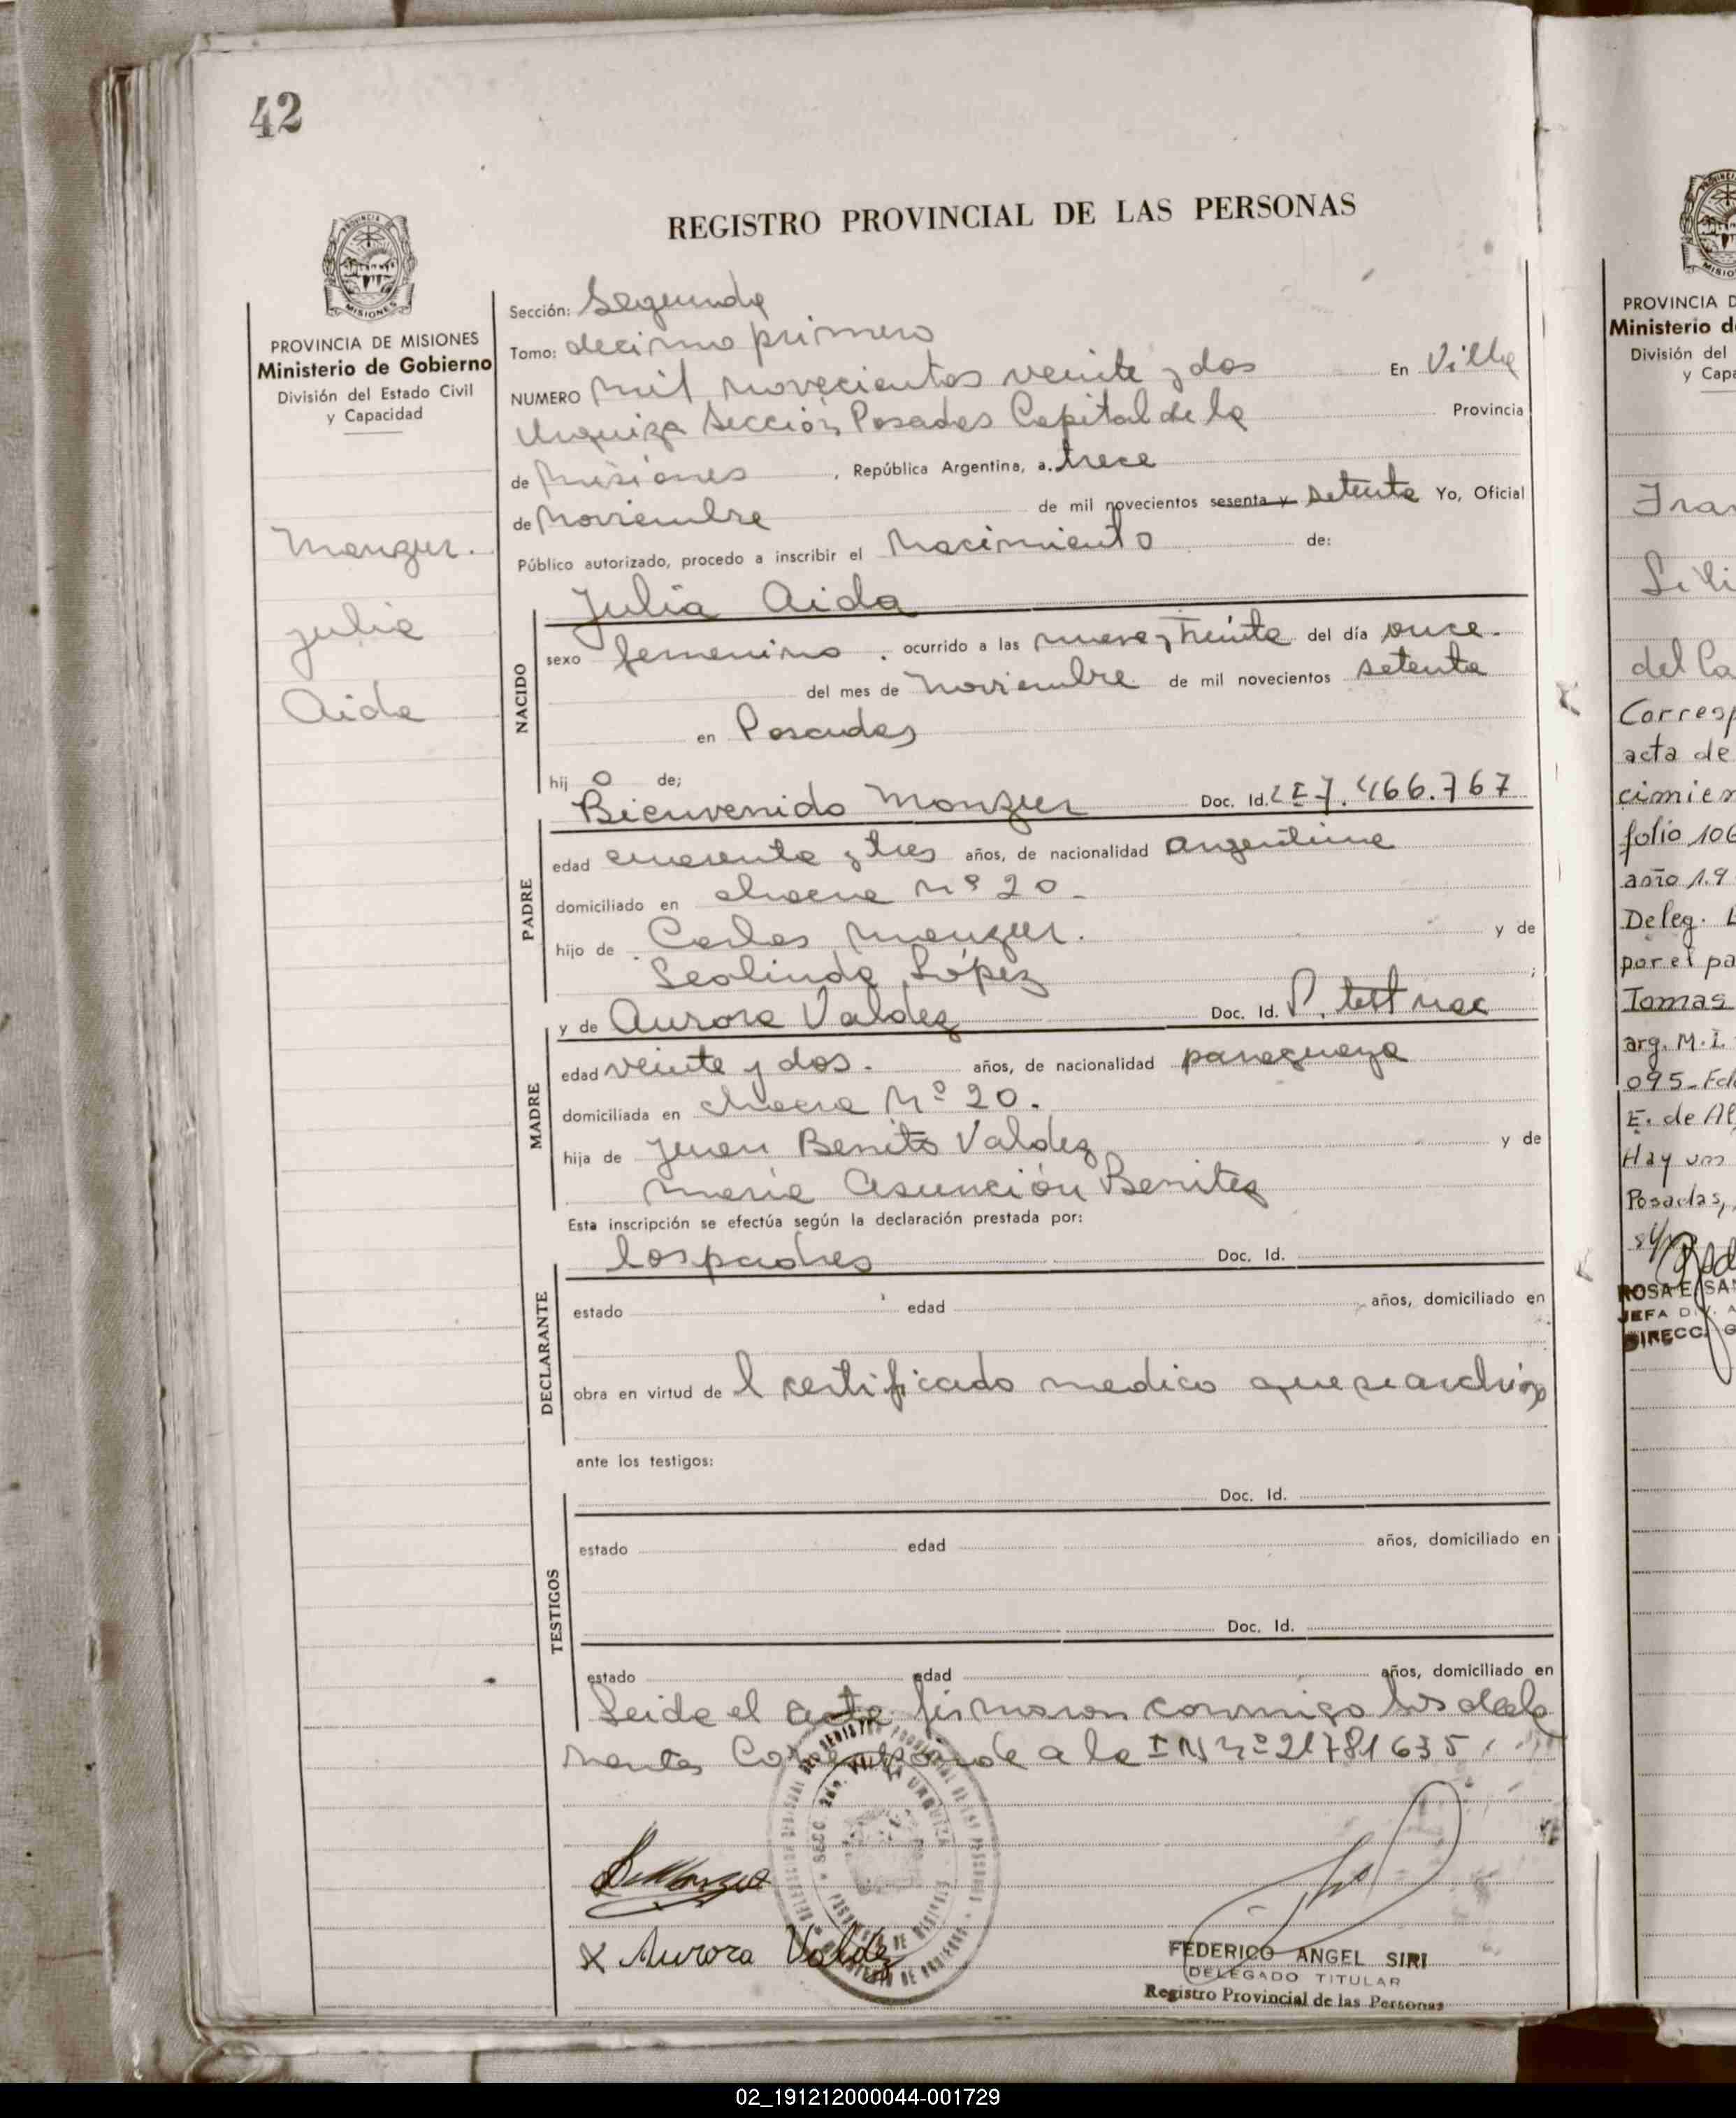 42
REGISTRO PROVINCIAL DE LAS PERSONAS
MISIONES
PROVINCIA DE MISIONES
Ministerio de Gobierno
División del Estado Civil
y Capacidad
Monzur.
Julia
Aida
Sección: Segunda
Tomo: decimo primero
NUMERO mil novecientos veinte y dos En Villa
Urquiza Sección Posadas Capital de la Provincia
de Misiones, República Argentina, a trece
de Noviembre de mil novecientos sesenta y setenta Yo, Oficial
Público autorizado, procedo a inscribir el Nacimiento de:
Julia Aida
NACIDO
sexo femenino. ocurrido a las nueve y treinta del día once.
del mes de Noviembre de mil novecientos setenta
en Posadas
hij o de;
Bienvenido Monzur Doc. Id. LE 7.466.767
PADRE
edad cuarenta y tres años, de nacionalidad argentina
domiciliado en chacra Nº 20.
hijo de Carlos Monzur. y de
Leolinda López ;
y de Aurora Valdez Doc. Id. P. test nac
MADRE
edad veinte y dos. años, de nacionalidad paraguaya
domiciliada en chacra Nº 20.
hija de Juan Benito Valdez y de
María Asunción Benitez
Esta inscripción se efectúa según la declaración prestada por:
los padres Doc. Id.
DECLARANTE
estado edad años, domiciliado en
obra en virtud de l certificado medico que se archiva
ante los testigos:
Doc. Id.
TESTIGOS
estado edad años, domiciliado en
Doc. Id.
estado edad años, domiciliado en
Leida el acta firmaron conmigo los decla
rantes Corresponde a la IN nº 21781635.
Aurora Valdez
FEDERICO ANGEL SIRI
DELEGADO TITULAR
Registro Provincial de las Personas
PROVINCIA D
Ministerio d
División del
y Capa
Fran
del Ca
Corresp
acta de
cimien
folio 106
año 1.9
Deleg.
por el pa
Tomas
arg. M.I.
095-
E. de Al
Hay un
Posadas,
ROSA E. SAN
JEFA DIV. A
DIRECC. G
02_191212000044-001729